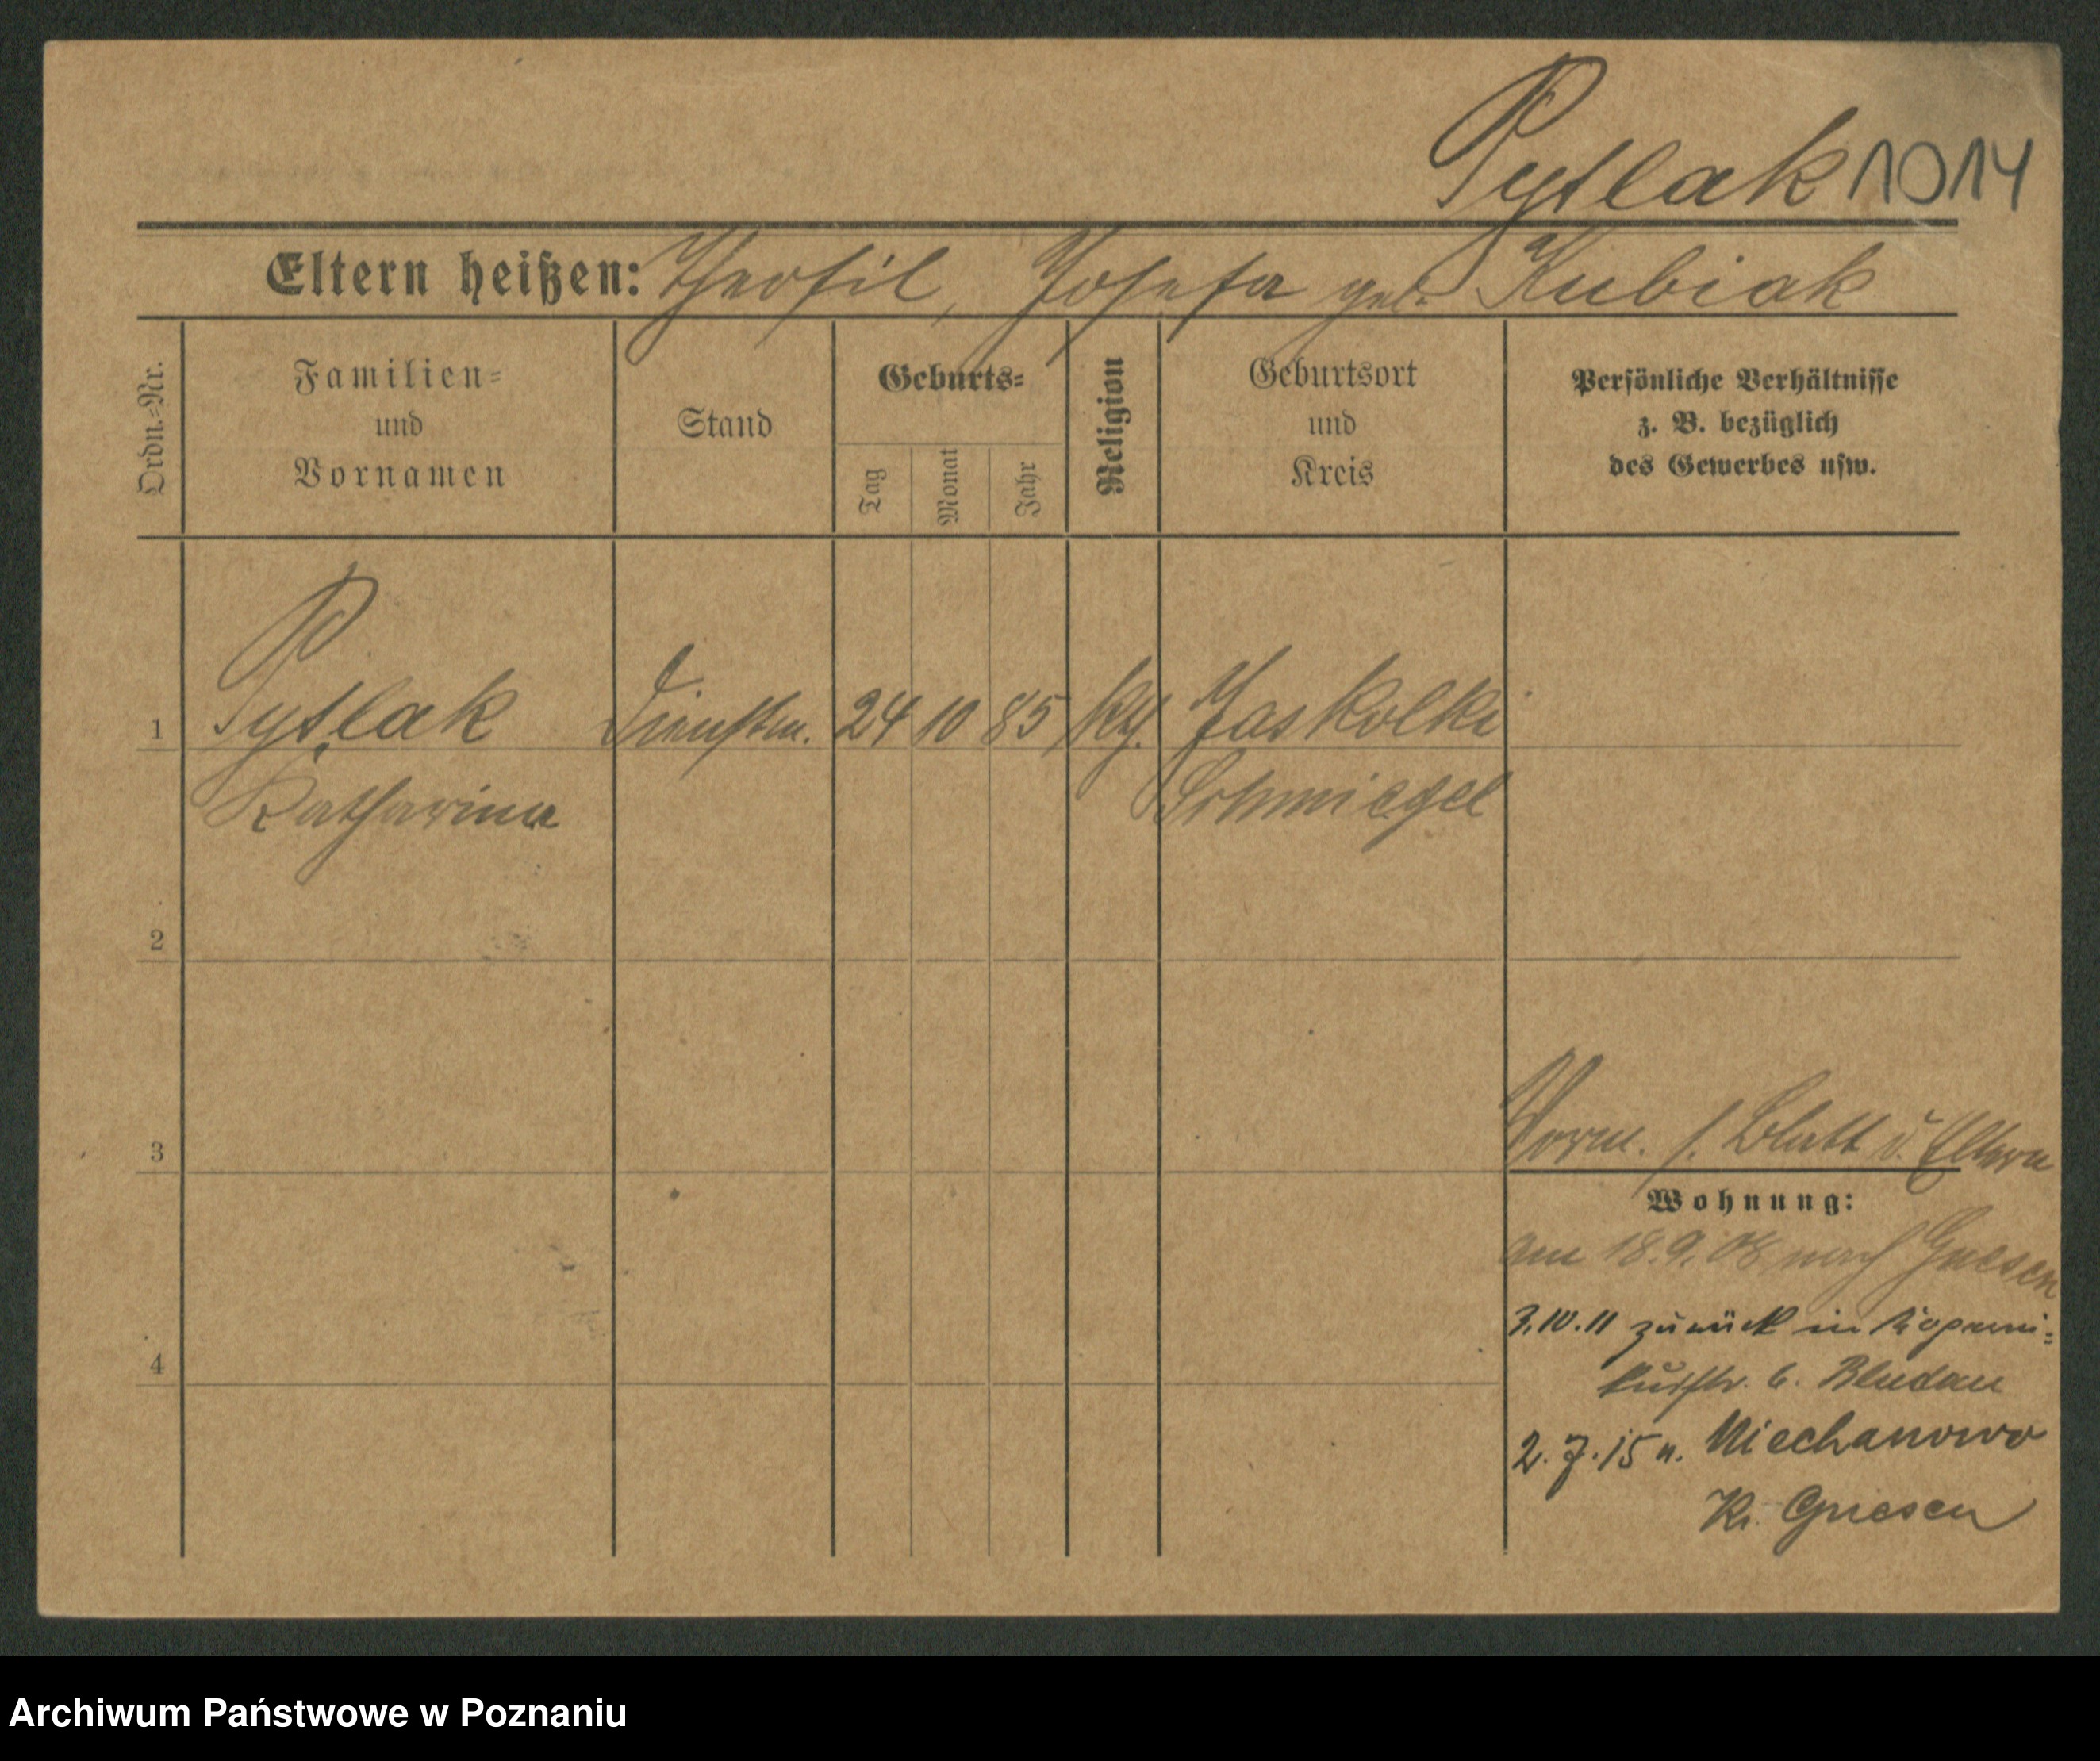 Pytlak 1014
Eltern heißen: Theofil, Josefa geb. Kubiak
Ordn.=Nr.
Familien=
und
Vornamen
Stand
Geburts=
Tag
Monat
Jahr
Religion
Geburtsort
und
Kreis
Persönliche Verhältnisse
z. B. bezüglich
des Gewerbes usw.
1 Pytlak Dienstm. 24 10 85 kth. Jaskolki
Katharina Schmiegel
2
3
Vorm. s. Blatt d. Eltern
Wohnung:
am 18.9.08 nach Gnesen
3.10.11 zurück in Koperni=
kusstr. 6. Bludau
2.7.15 n. Niechanowo
Kr. Gnesen
4
Archiwum Państwowe w Poznaniu